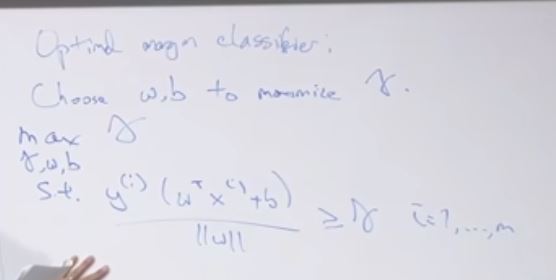 Optimal margin classifier:
Choose w,b to maximize γ.
max γ
γ,w,b
s.t. y⁽ⁱ⁾ (wᵀ x⁽ⁱ⁾ + b) / ||w|| ≥ γ i=1,...,m